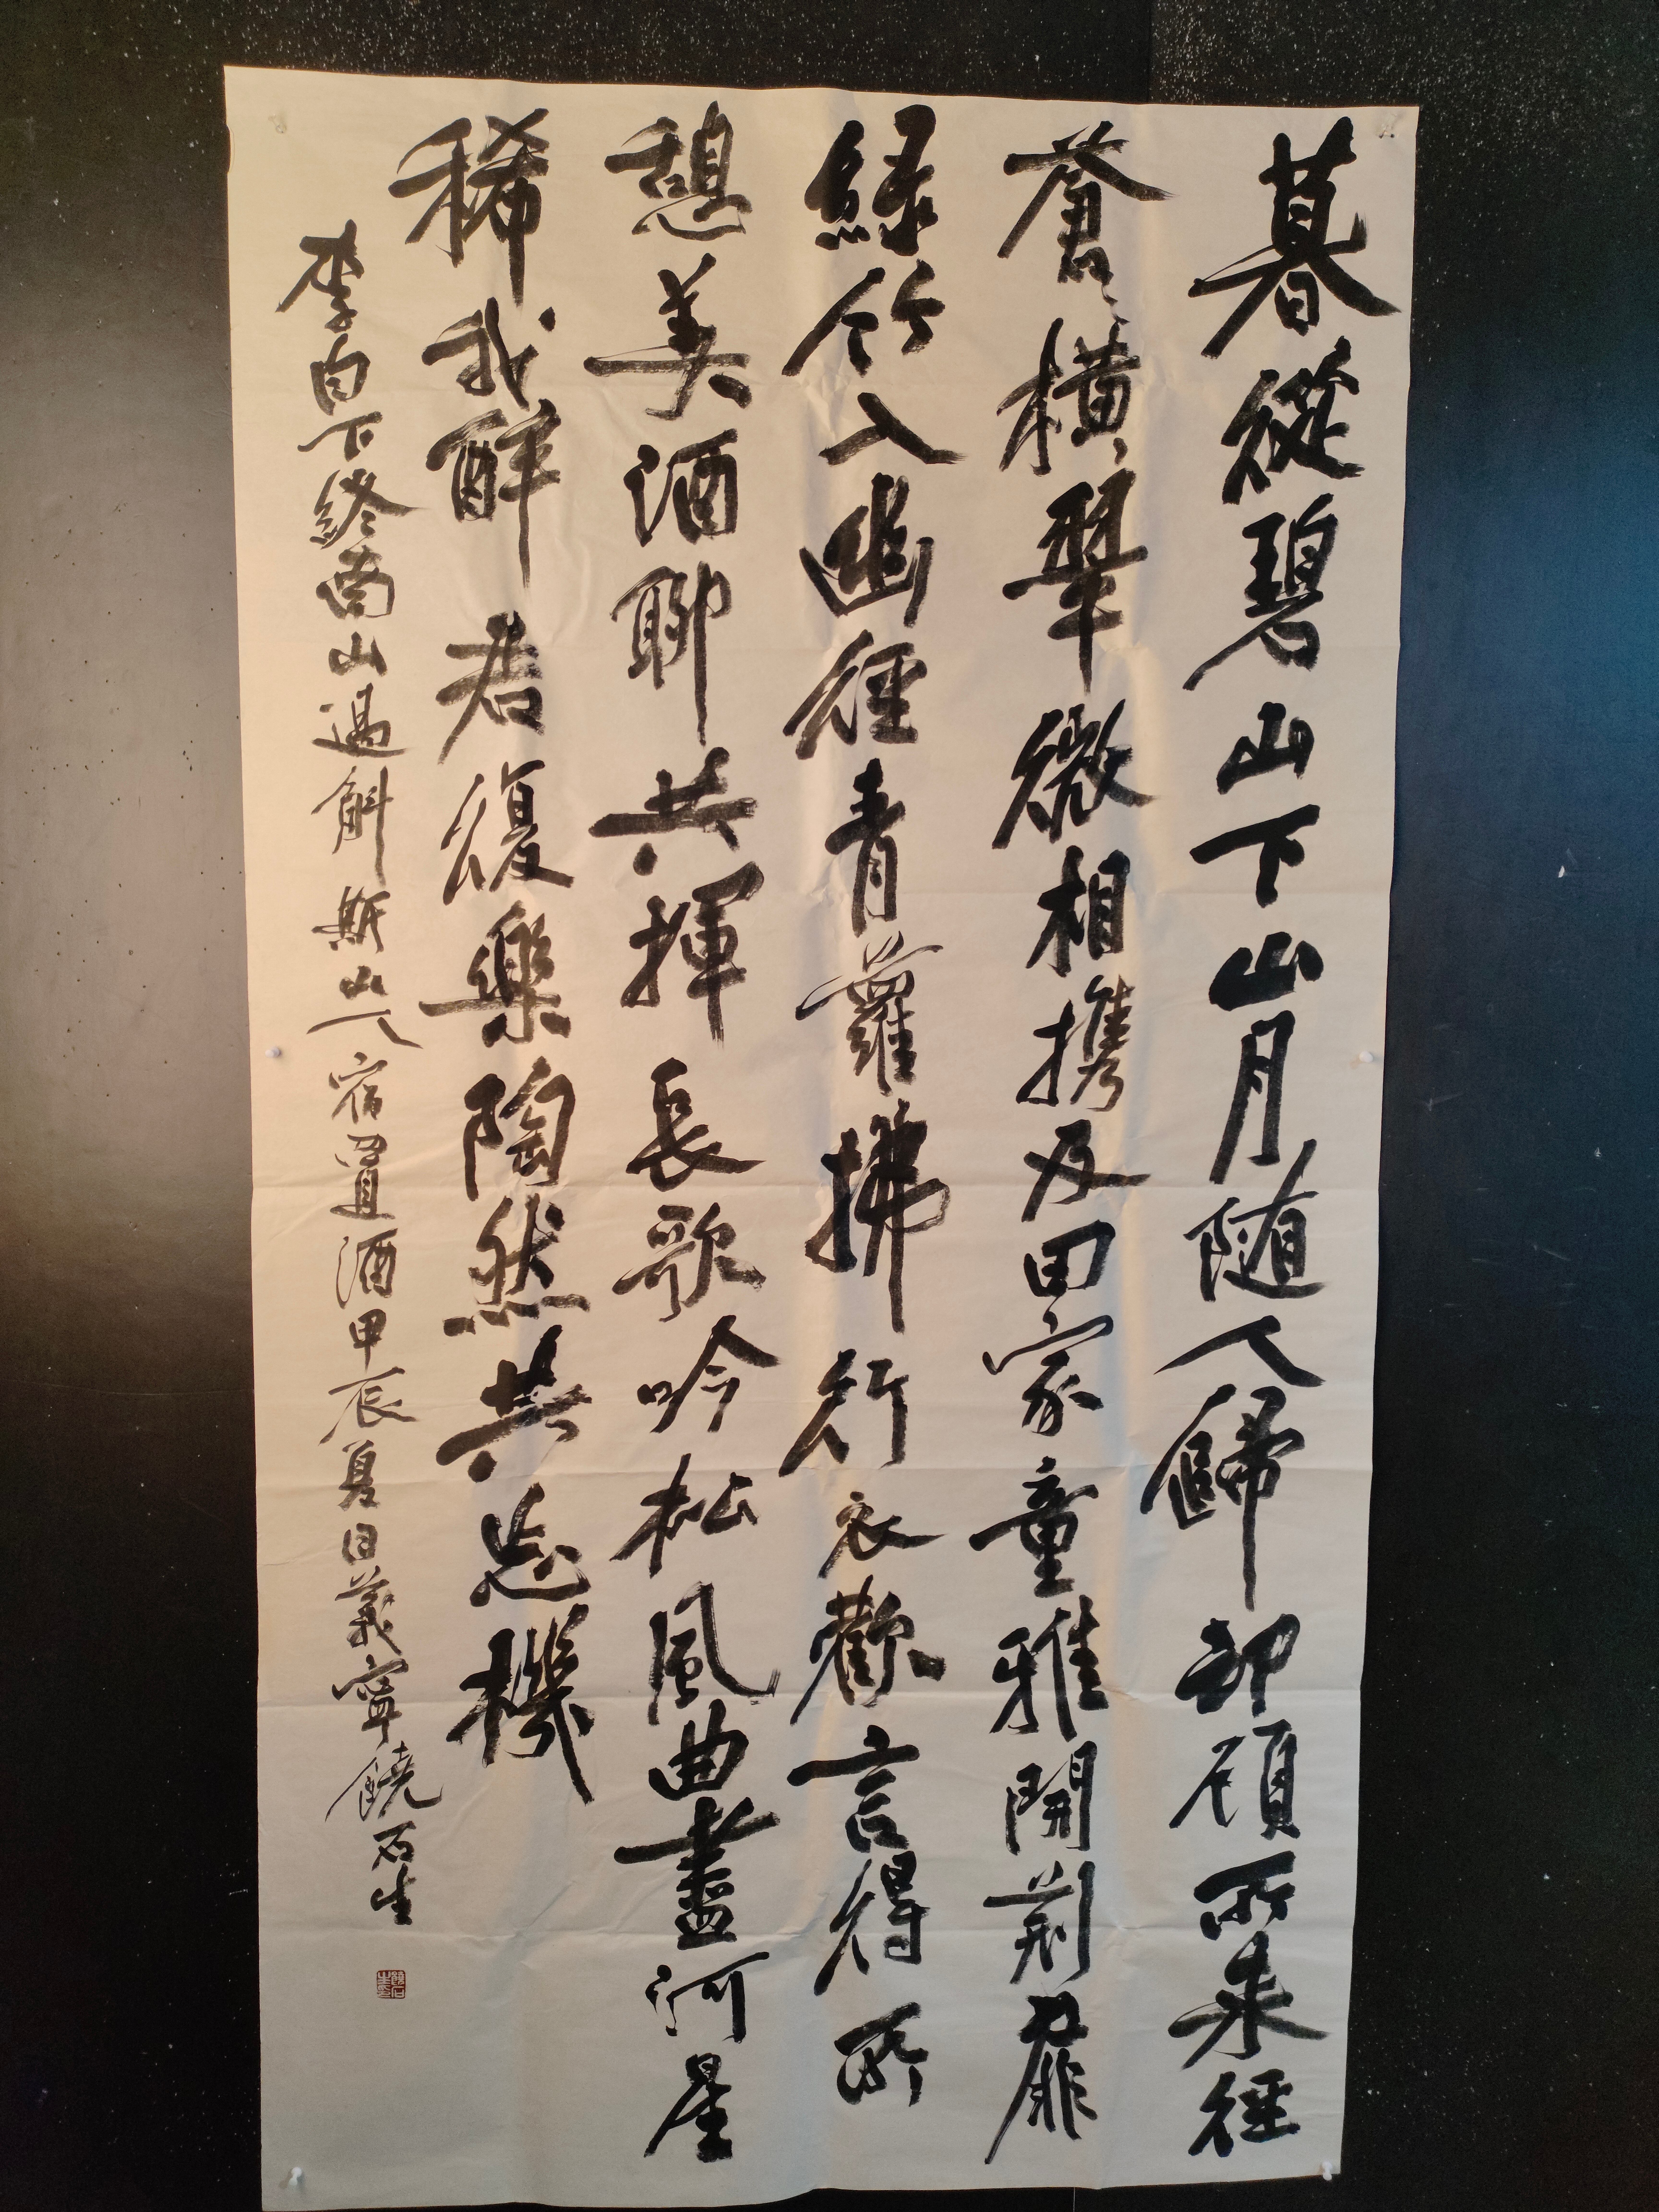 暮從碧山下山月随人歸却顧所來徑
蒼々橫翠微相携及田家童稚開荆扉
緑竹入幽徑青蘿拂行衣歡言得所
憩美酒聊共揮長歌吟松風曲盡河星
稀我醉君復樂陶然共忘機
李白下終南山過斛斯山人宿置酒甲辰夏日義寧饒石生